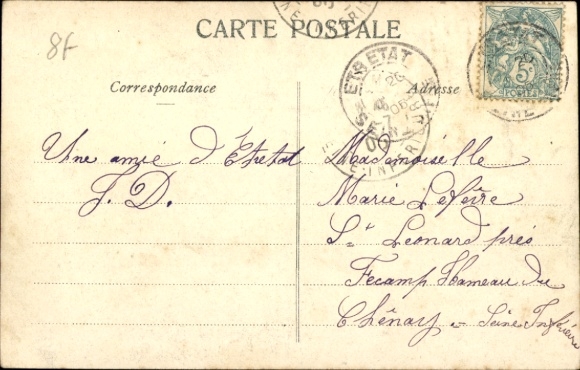 8f
CARTE POSTALE
Correspondance
Adresse
ETRETAT
SEINE INFERIEURE
5c
POSTES
Une amie d'Etretat
J. D.
Mademoiselle
Marie Lefèvre
St Leonard près
Fecamp Hameau du
Chênay - Seine Inférieure